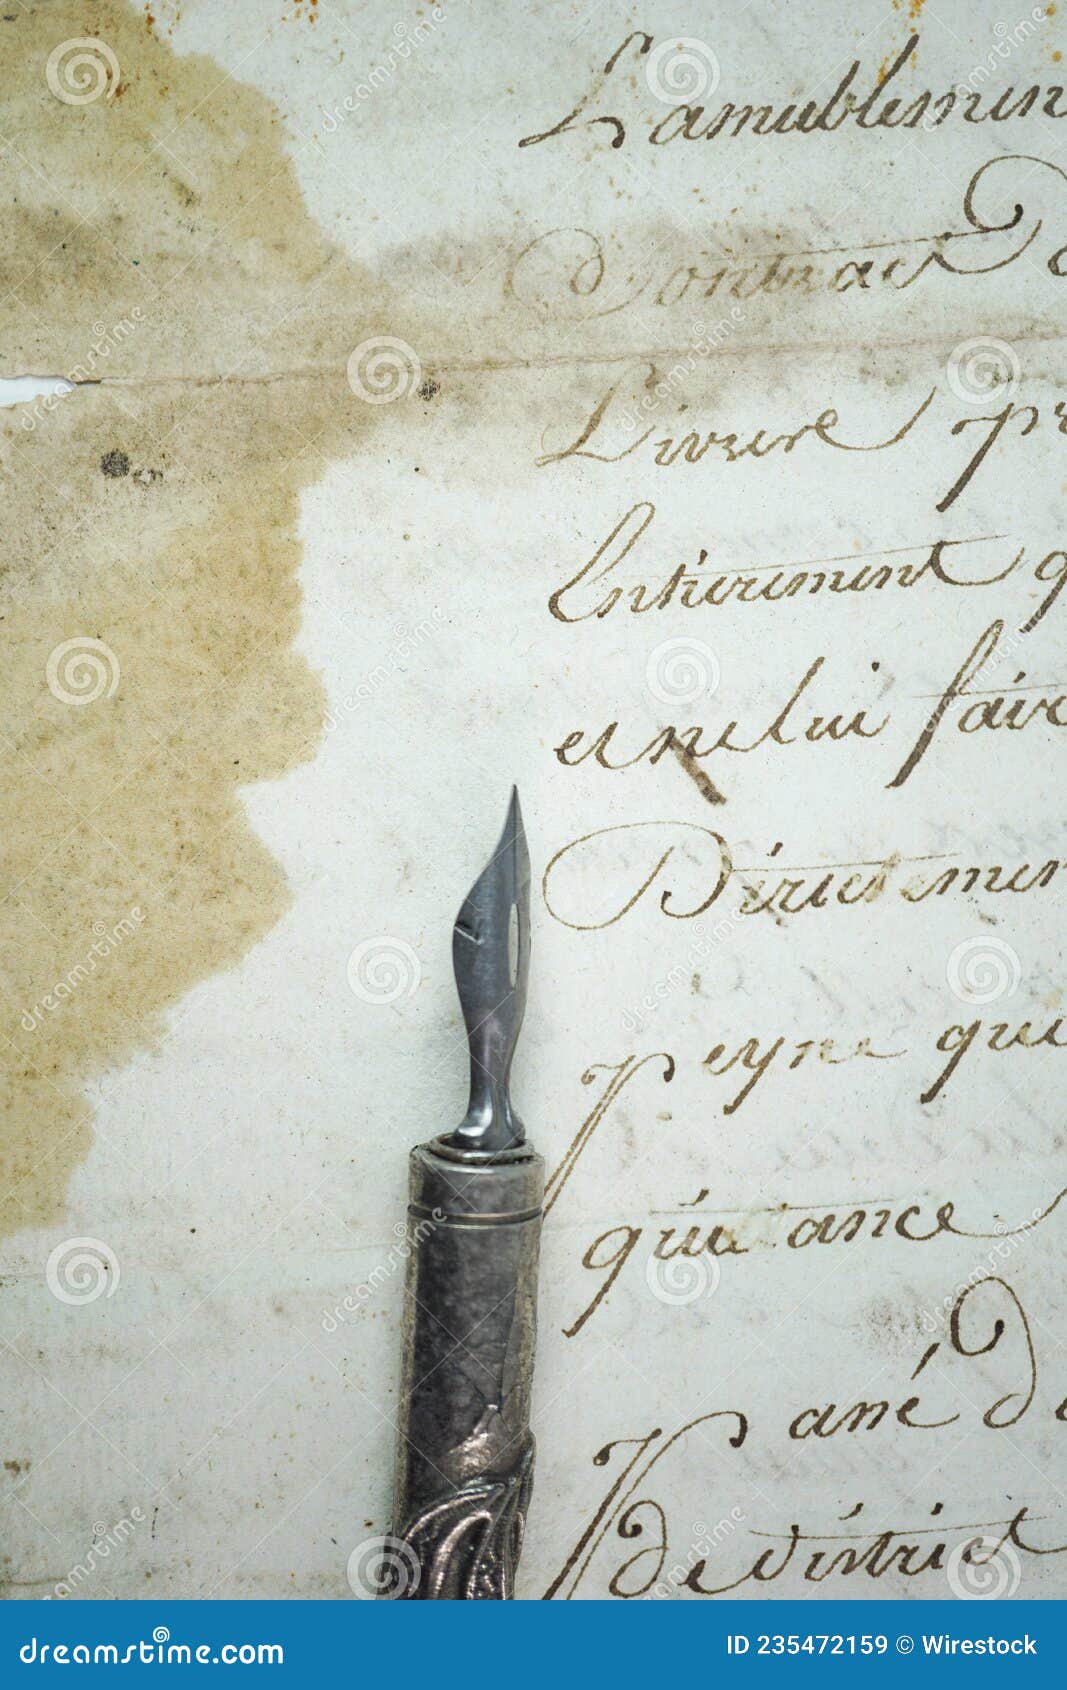 Lamublemen
Contract D
Livrere pr
Entierement q
et ne lui fair
Dirictemen
peyne qui
quittance
pané De
De district
dreamstime.com
ID 235472159 © Wirestock